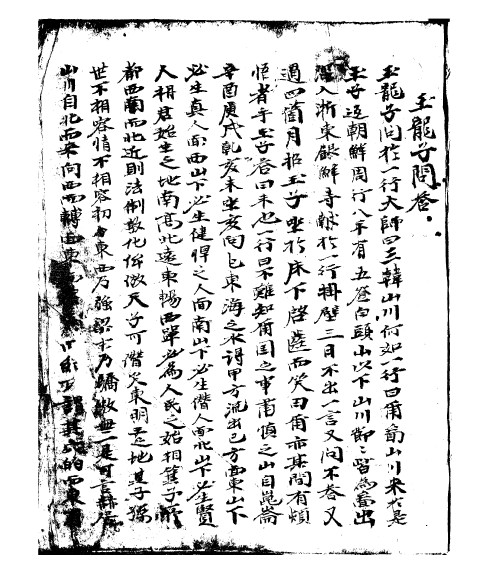 玉龍子問答
玉龍子問於一行大師曰三韓山川何如一行曰爾畵山川來於是
玉子返朝鮮周行八年有五卷白頭山以下山川節〻皆爲畵出
入浙東寺獻於一行掛壁三日不出一言又問不答又
過四箇月招玉子坐於床下啓而笑曰爾亦其間有煩
悟者乎玉子答曰未也一行曰不難知爾國之事甫愼之山自崑崙
辛酉庚戌乾亥未坐亥向巳東海之水得甲方流出巳方面東山下
必生真人面西山下必生健悍之人面南山下必生僭人面北山下必生賢
人始生之地南高北遠東暢西窄必爲人民之始祖箕子所
都西而北近則法制敎化倣天子可僭矣東明之地其子孫
世不相容情不相容初分東西乃強乃驕傲無一是可言
山川自北而來向西而轉面東